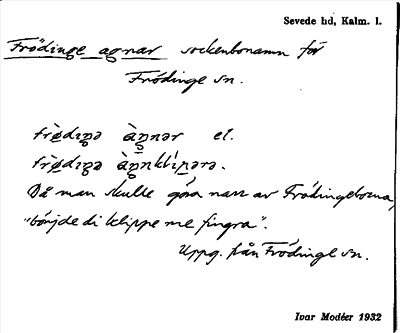 Sevede hd, Kalm. l.
Frödinge agnar sockenbonamn för
Frödinge sn.
frø̀dɪŋə àŋnər el.
frø̀dɪŋə àŋnklípərə.
Då man skulle göra narr av Frödingeborna,
"börjde di klippe me fingra".
Uppg. från Frödinge sn.
Ivar Modéer 1932